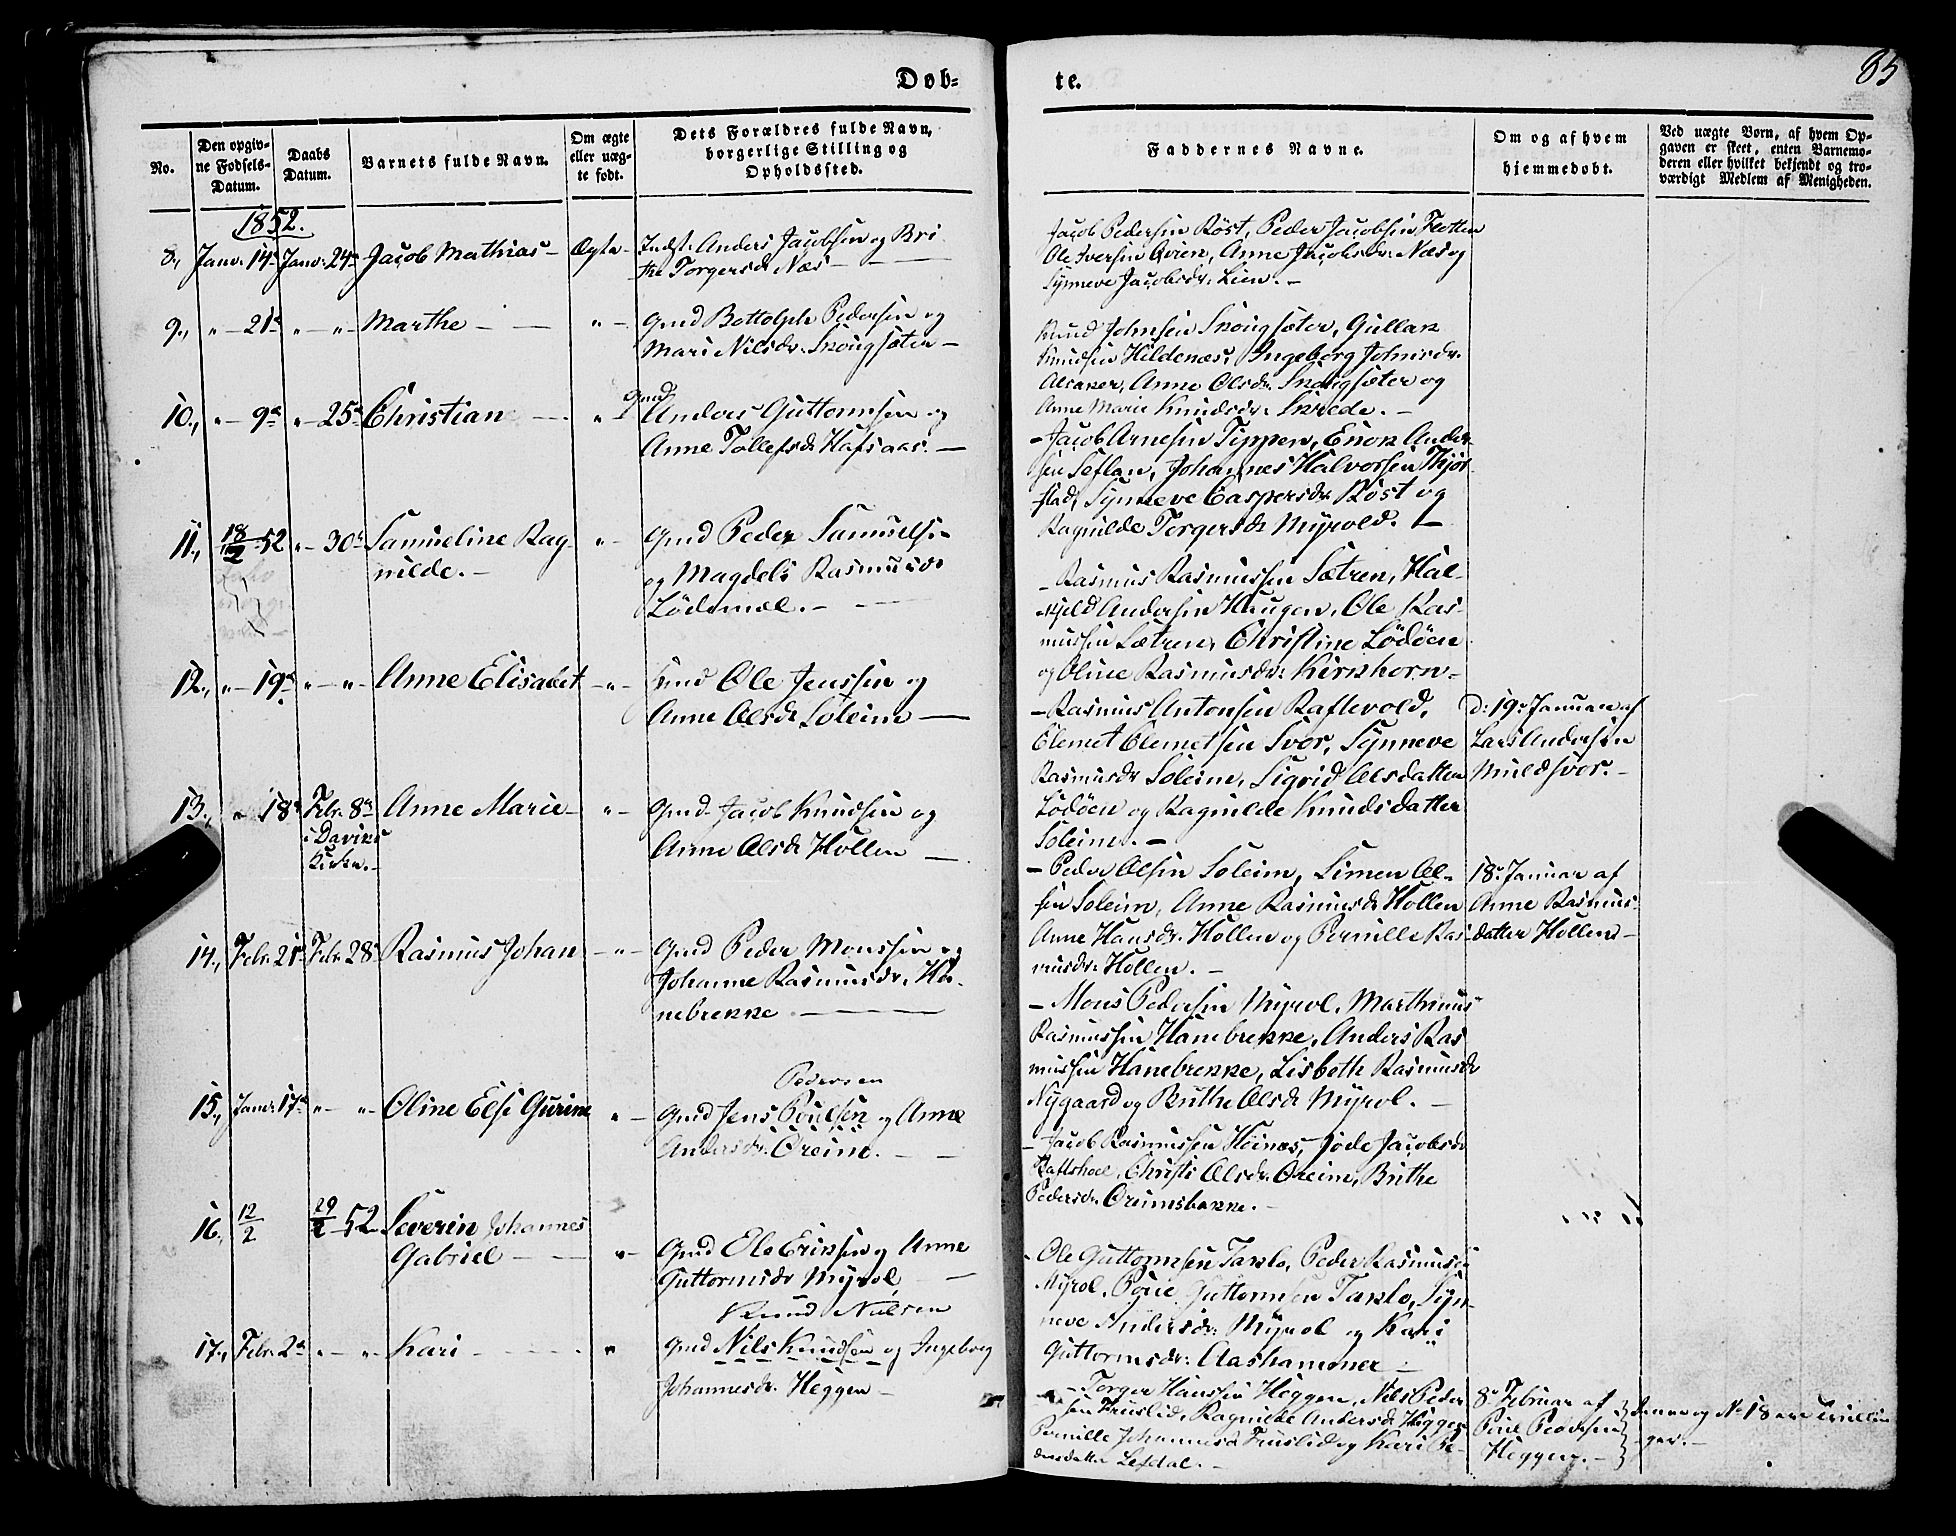 Døb-
te.
85
No.
Den opgiv-
ne Fødsels-
Datum.
Daabs
Datum.
Barnets fulde Navn.
Om ægte
eller uæg-
te født.
Dets Forældres fulde Navn,
borgerlige Stilling og
Opholdssted.
Faddernes Navne.
Om og af hvem
hjemmedøbt.
Ved uægte Børn, af hvem Op-
gaven er skeet, enten Barnemo-
deren eller hvilket bekjendt og tro-
værdigt Medlem af Menigheden.
1852.
8., Janv: 14de Janv: 24de Jacob Mathias - Ægte - Indst: Anders Jacobsen og Bri-
the Torgersdr Næs -
Jacob Pedersen Röst, Peder Jacobsen Flotten
Ole Iversen Qvien, Anne Jacobsdr: Næs og
Synneve Jacobsdr: Lien. -
9., " - 21de " - " - Marthe - " - Gmd Bottolph Pedersen og
Mari Nilsdr. Skougsæter -
Knud Johnsen Skougsæter, Gullak
Knudsen Hildenæs, Ingeborg Johnsdr.
Alsaker, Anne Olsdr. Skougsæter og
Anne Marie Knudsdr: Skrede. -
10., " - 9de " - 25de Christian - " Gmd
Anders Guttormsen og
Anne Tollefsdr Hafsaas. -
- Jacob Arnesen Tippen, Enok Ander-
sen Seflan, Johannes Halvorsen Thjør-
stad, Synneve Caspersdr Röst og
Ragnilde Torgersdr Myrold. -
11., 18/2 52 " - 30de Samueline Rag- " - Gmd Peder Samuelsen
nilde. -
og Magdeli Rasmusdr
Lödemæl. -
- Rasmus Rasmussen Sætren, Hal-
kjeld Andersen Haugen, Ole Ras-
mussen Sætren, Christine Lödöen
og Oline Rasmusdr: Kirkhorn -
12., " - 19de " - " - Anne Elisabet - " - Gmd Ole Jenssen og
Anne Olsdr Soleim -
- Rasmus Antonsen Raftevold,
Clemet Clemetsen Svor, Synneve
Rasmusdr Soleim, Sigrid Olsdatter
Lödöen og Ragnilde Knudsdatter
Soleim. -
D: 19de Januar af
Lars Andersen
Muldsvor. -
13., " - 18de Febr. 8de Anne Marie - " - Gmd. Jacob Knudsen og
i Daviks
Kirke. -
Anne Olsdr Hollen -
- Peder Olsen Soleim, Simen Ol-
sen Soleim, Anne Rasmusdr Hollen
Anne Hansdr. Hollen og Pernille Ras-
musdr: Hollen. -
18de Januar af
Anne Rasmus-
datter Hollen -
14., Febr. 21de Febr. 28de Rasmus Johan - " - Gmd Peder Monssen og
Johanne Rasmusdr. Ha-
nebrekke. -
- Mons Pedersen Myrol, Marthinus
Rasmussen Hanebrekke, Anders Ras-
mussen Hanebrekke, Lisbeth Rasmusdr
Nygaard og Brithe Olsdr Myrol. -
15., Janv: 17de " - " - Oline Else Gurine " - Gmd Jens Poulsen og Anne
Pedersen
Andersdr. Öreim. -
- Jacob Rasmussen Höinæs, Jøde Jacobsdr
Christi Olsdr. Öreim, Brithe
Pedersdr. Öreimsbakke. -
16., 12/2 29/2 52 Severin Johannes
Gabriel - " - Gmd Ole Eriksen og Anne
Guttormsdr Myrol -
- Ole Guttormsen Taklo, Peder Rasmussen
Myrol, Poul Guttormsen Taklo, Syn-
neve Andersdr: Myrol og Kari
Guttormsdr: Aashammer -
17., Febr. 2de " - " - Kari - " Gmd Nils Knudsen og Ingeborg
Knud Nielsen
Johannesdr. Heggen -
- Torger Hanssen Heggen, Nils Peder-
sen Fruslid, Ragnilde Andersdr Heggen
Pernille Johannesdr Fruslid og Kari Pe-
dersdatter Lefdal. -
8de Februar af
Poul Pedersen
Heggen. -
Denne og No 18 ere Tvillin-
ger. -